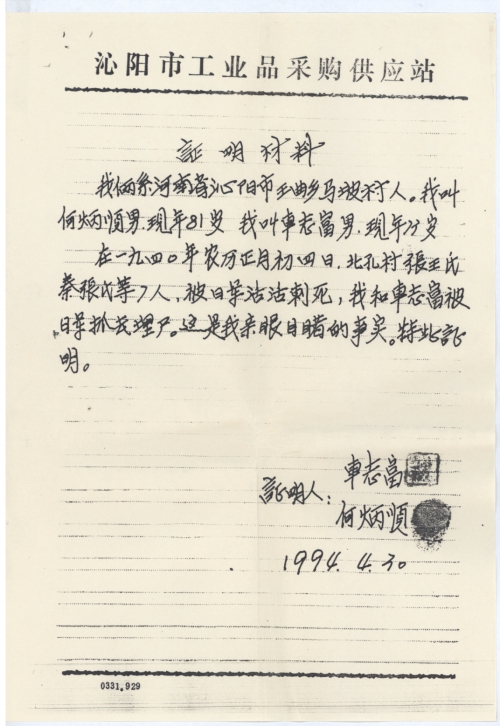 沁阳市工业品采购供应站
証明材料
我俩系河南省沁阳市王曲乡马坡村人。我叫
何炳順男.现年81岁 我叫車志富男.现年75岁
在一九四〇年农历正月初四日,北孔村張王氏
秦張氏等7人,被日军活活刺死,我和車志富被
日军抓去埋尸。这是我亲眼目睹的事实。特此証
明。
車志富
証明人:
何炳順
1994.4.30
0331.929